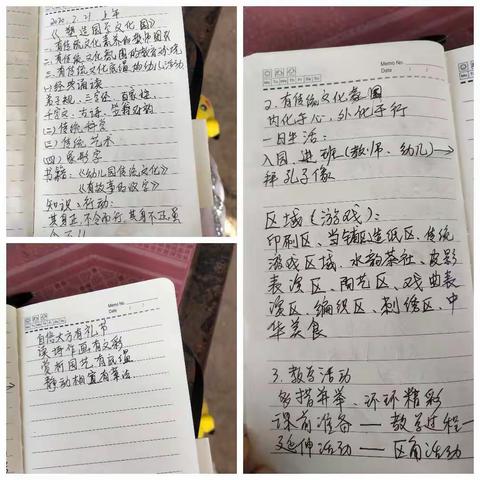 2020.2.21 上午
《塑造国学文化园》
一.有传统文化素养的教师团队
二.有传统文化氛围的教育环境
三.有传统文化底蕴的幼儿活动
(一)经典诵读
弟子规、三字经、百家姓、
千字文、古诗、笠翁对韵
(二)传统科学
(三)传统艺术
(四)象形字
书籍:《幼儿园传统文化》
《有故事的汉字》
知识→行动:
其身正,不令而行,其身不正,虽
令不从
Memo No.
Date
自信大方有礼节
读诗作画有文彩
赏析园艺有底蕴
静动相宜有章法
Memo No.
Mo Tu We Th Fr Sa Su
Date
2.有传统文化氛围
内化于心,外化于行
一日生活:
入园、进班(教师、幼儿)→
拜孔子像
区域(游戏):
印刷区、当铺区造纸区、传统
游戏区域、水韵茶社、皮影
表演区、陶艺区、戏曲表
演区、编织区、刺绣区、中
华美食
3.教学活动
多措并举、环环精彩
课前准备——教学过程—
延伸活动——区角活动